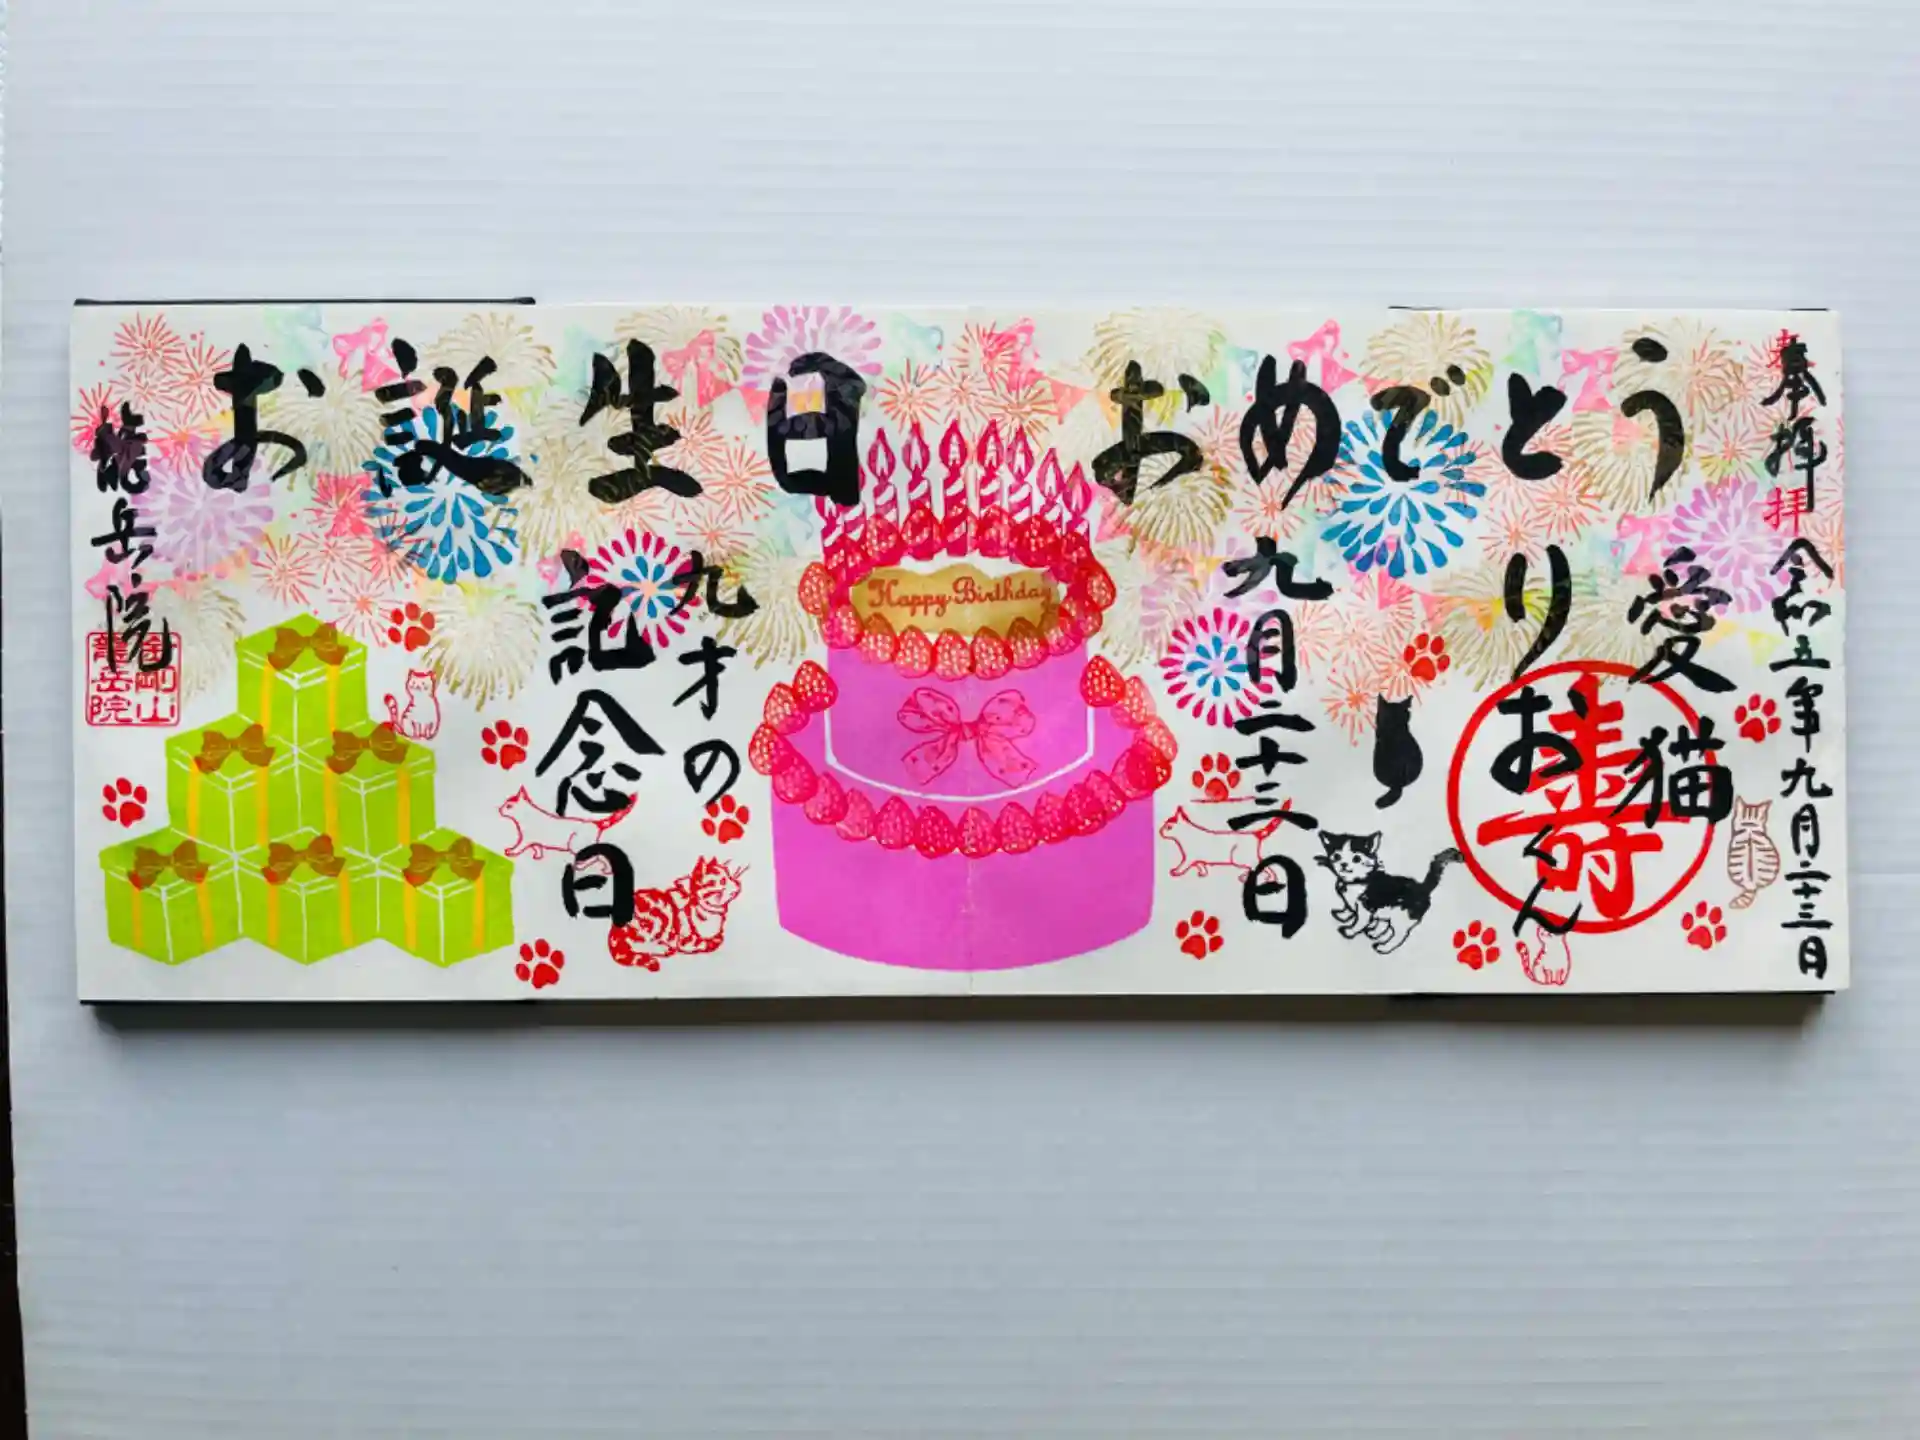 お誕生日 おめでとう
奉拝
奉拝
令和五年九月二十三日
愛猫
りおくん
壽
九月二十三日
Happy Birthday
九才の
記念日
龍岳院
金剛山
龍岳院